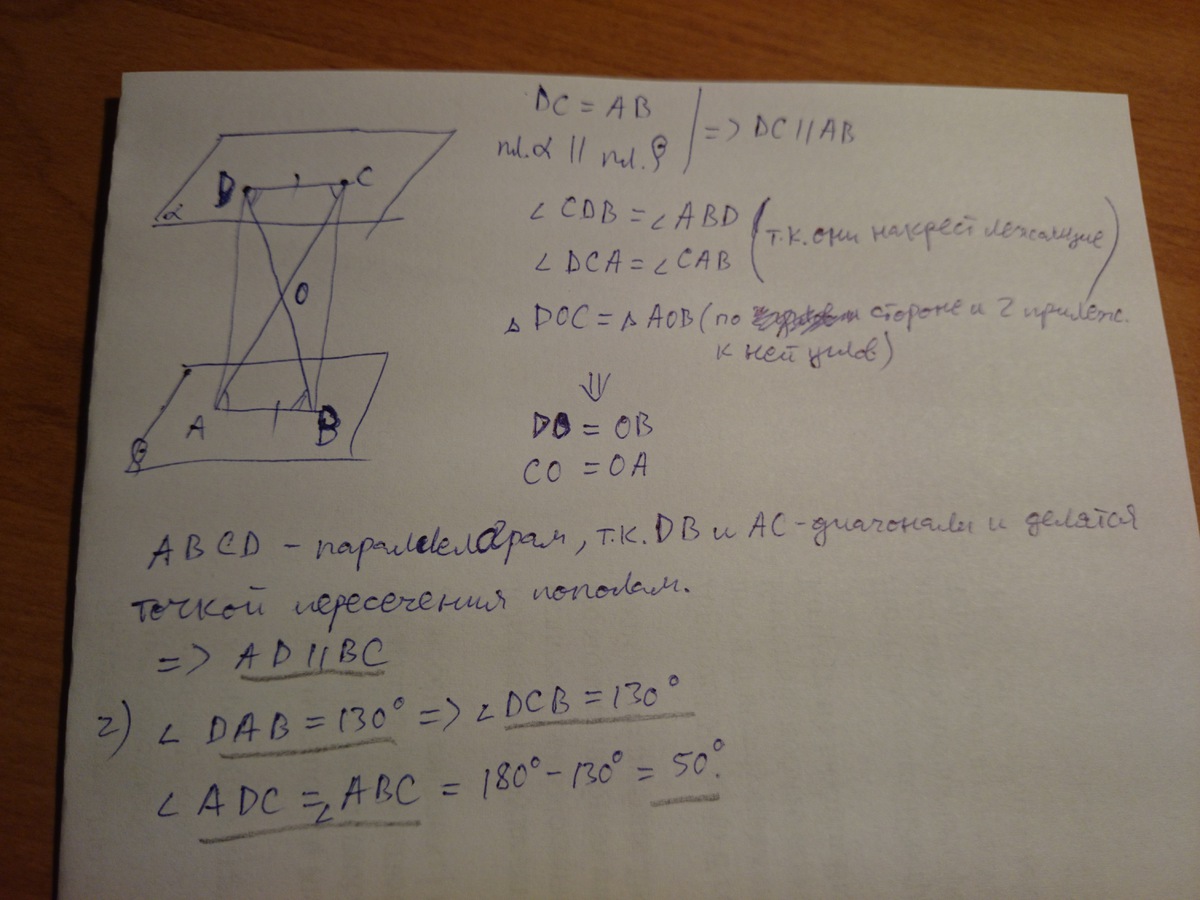 DC = AB
пл.α || пл.β
=> DC || AB
D
C
α
∠CDB = ∠ABD
∠DCA = ∠CAB
(т.к. они накрест лежащие)
O
△DOC = △AOB (по стороне и 2 прилеж.
к ней углов)
⇓
A
B
β
DO = OB
CO = OA
ABCD - параллелограм, т.к. DB и AC - диагонали и делятся
точкой пересечения пополам.
=> AD || BC
2) ∠DAB = 130° => ∠DCB = 130°
∠ADC = ∠ABC = 180° - 130° = 50°.